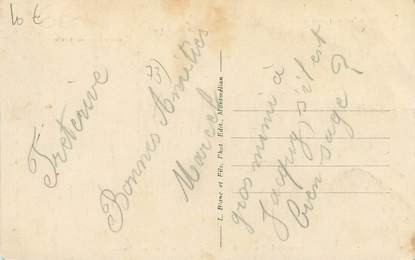 10 €
Fréterive
Bonnes Amitiés
Marcel
L. Blanc et Fils, Phot. Edit., Montmélian
gros mimi à
Jacquy s'il est
bien sage ?